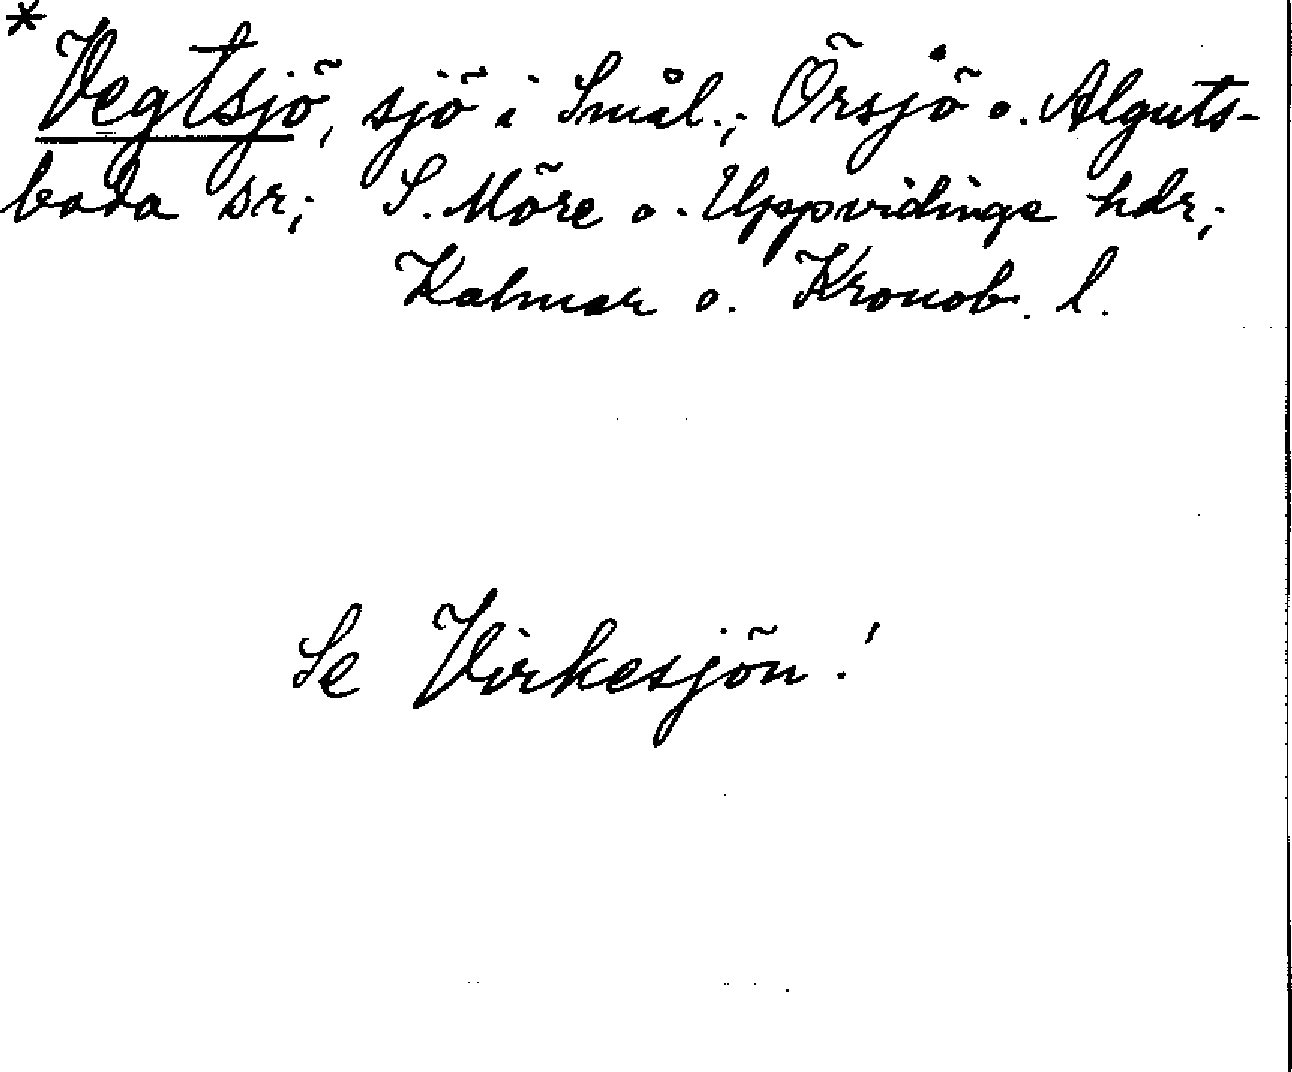 * Vegtsjö, sjö i Smål.; Örsjö o. Alguts-
boda sr; S. Möre o. Uppvidinge hdr;
Kalmar o. Kronob. l.
Se Virkesjön!